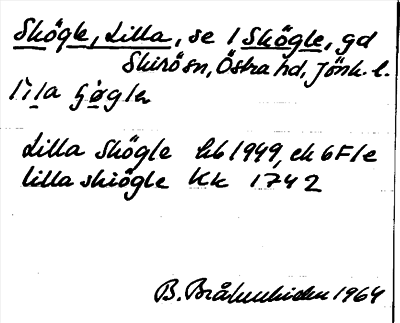 Skögle, Lilla, se 1 Skögle, gd
Skirö sn, Östra hd, Jönk. l.
Lilla Skögle hb 1949, ek 6F1e
lilla skiögle Kk 1742
B. Bråkenhielm 1964